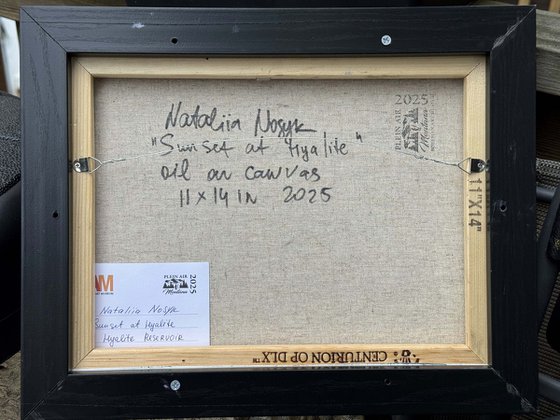 Nataliia Nosyk
"Sunset at Hyalite"
oil on canvas
11 x 14 IN 2025
2025
PLEIN AIR
Montana
11"X14"
AM
PLEIN AIR
Montana
2025
Nataliia Nosyk
Sunset at Hyalite
Hyalite RESERVOIR
CENTURION OP DLX™